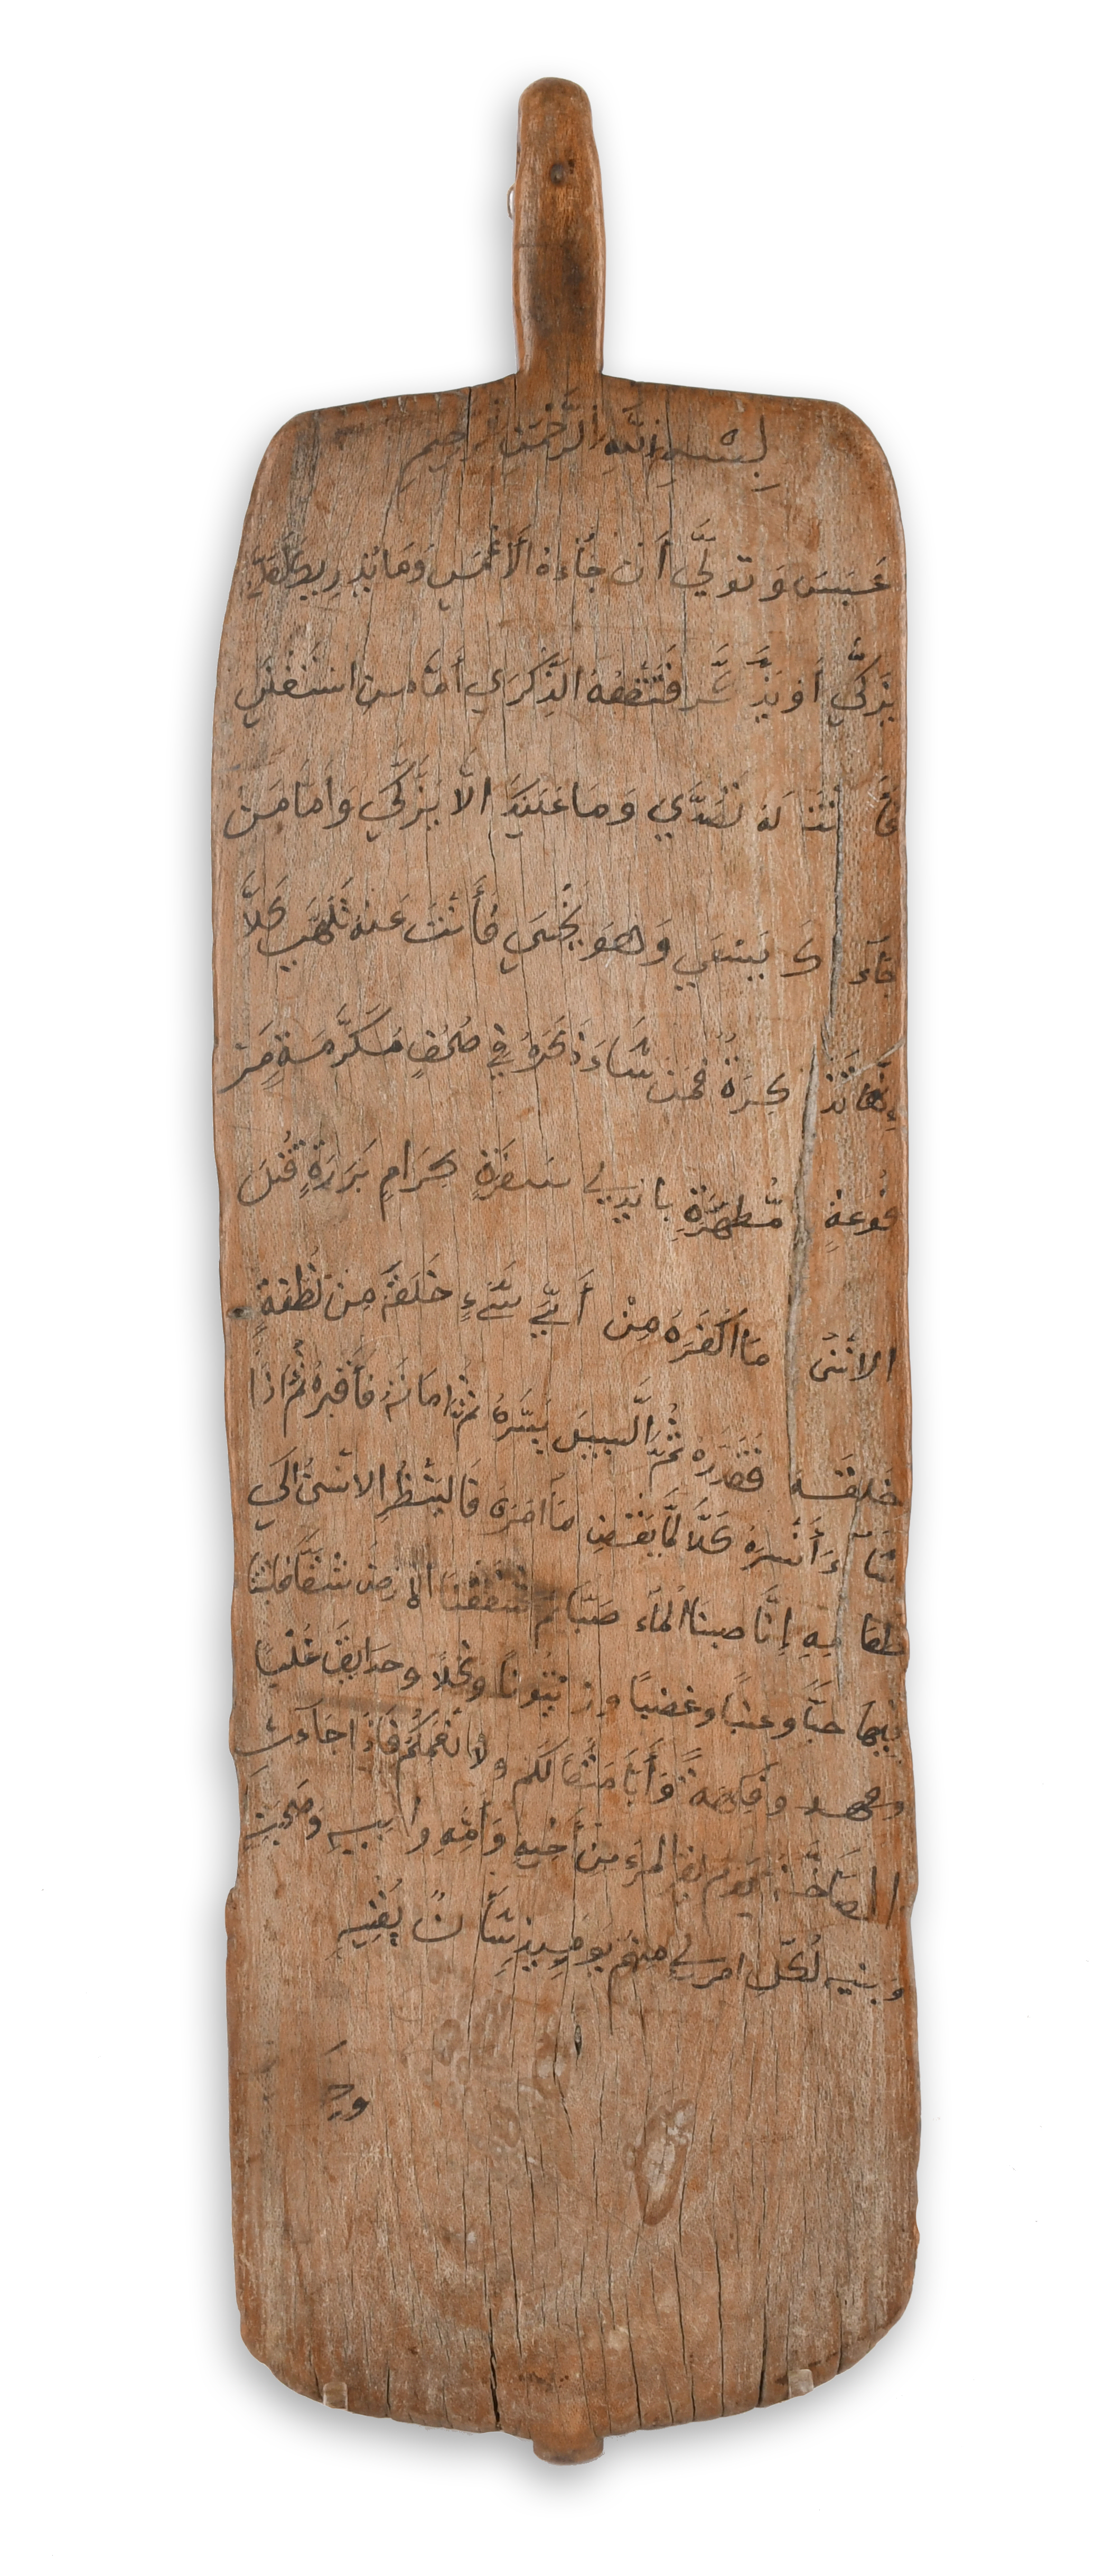 بِسْمِ اللَّهِ الرَّحْمَنِ الرَّحِيمِ
عَبَسَ وَتَوَلَّي أَن جَآءَهُ الْأَعْمَي وَمَا يُدْرِيكَ لَعَلَّهُ
يَزَّكَّي أَوْ يَذَّكَّرُ فَتَنْفَعَهُ الذِّكْرَي أَمَّا مَنِ اسْتَغْنَي
فَأَ نْتَ لَهُ تَصَدَّي وَمَا عَلَيْكَ الَّا يَزَّكَّي وَأَمَّا مَن
جَآءَ كَ يَسْعَي وَهُوَ يَخْشَي فَأَنْتَ عَنْهُ تَلَهَّي كَلَّا
إِنَّهَا تَذْ كِرَةٌ فَمَن شَآءَ ذَكَرَهُ فِي صُحُفٍ مُكَرَّمَةٍ مَرْ
فُوعَةٍ مُطَهَّرَةٍ بِايْدِي سَفَرَةٍ كِرَامٍ بَرَرَةٍ قُتِلَ
الانْسَنُ مَا اكْفَرَهُ مِنْ أَيِّ شَيْءٍ خَلَقَهُ مِن نُطْفَةٍ
خَلَقَهُ فَقَدَّرَهُ ثُمَّ السَّبِيلَ يَسَّرَهُ ثُمَّ امَاتَهُ فَأَقْبَرَهُ ثُمَّ اذَا
شَآ ءَ أَنْشَرَهُ كَلَّا لَمَّا يَقْضِ مَا امَرَهُ فَالْيَنْظُرِ الانْسَنُ الَي
طَعَا مِهِ إِنَّا صَبَبْنَا الْمَآءَ صَبًّا ثُمَّ شَقَقْنَا الارْضَ شَقًّا فَانْبَتْنَا
فِيهَا حَبًّا وَعِنَبًا وَغَضْبًا وَزَيْتُونًا وَنَخْلًا وَحَدَايِقَ غُلْبًا
وَفَكِهَةً وَأَبًّا مَتَعًا لَكُمْ وَلِأَنْعَمِكُمْ فَاذَا جَآءَتِ
الصَّآخَّةُ يَوْمَ يَفِرُّ الْمَرْءُ مِنْ أَخِيهِ وَأُمِّهِ وَابِيهِ وَصَحِبَتِهِ
وَبَنِيهِ لِكُلِّ امْرِي مِنْهُمْ يَوْمَيِذٍ شَأْنٌ يُغْنِيهِ